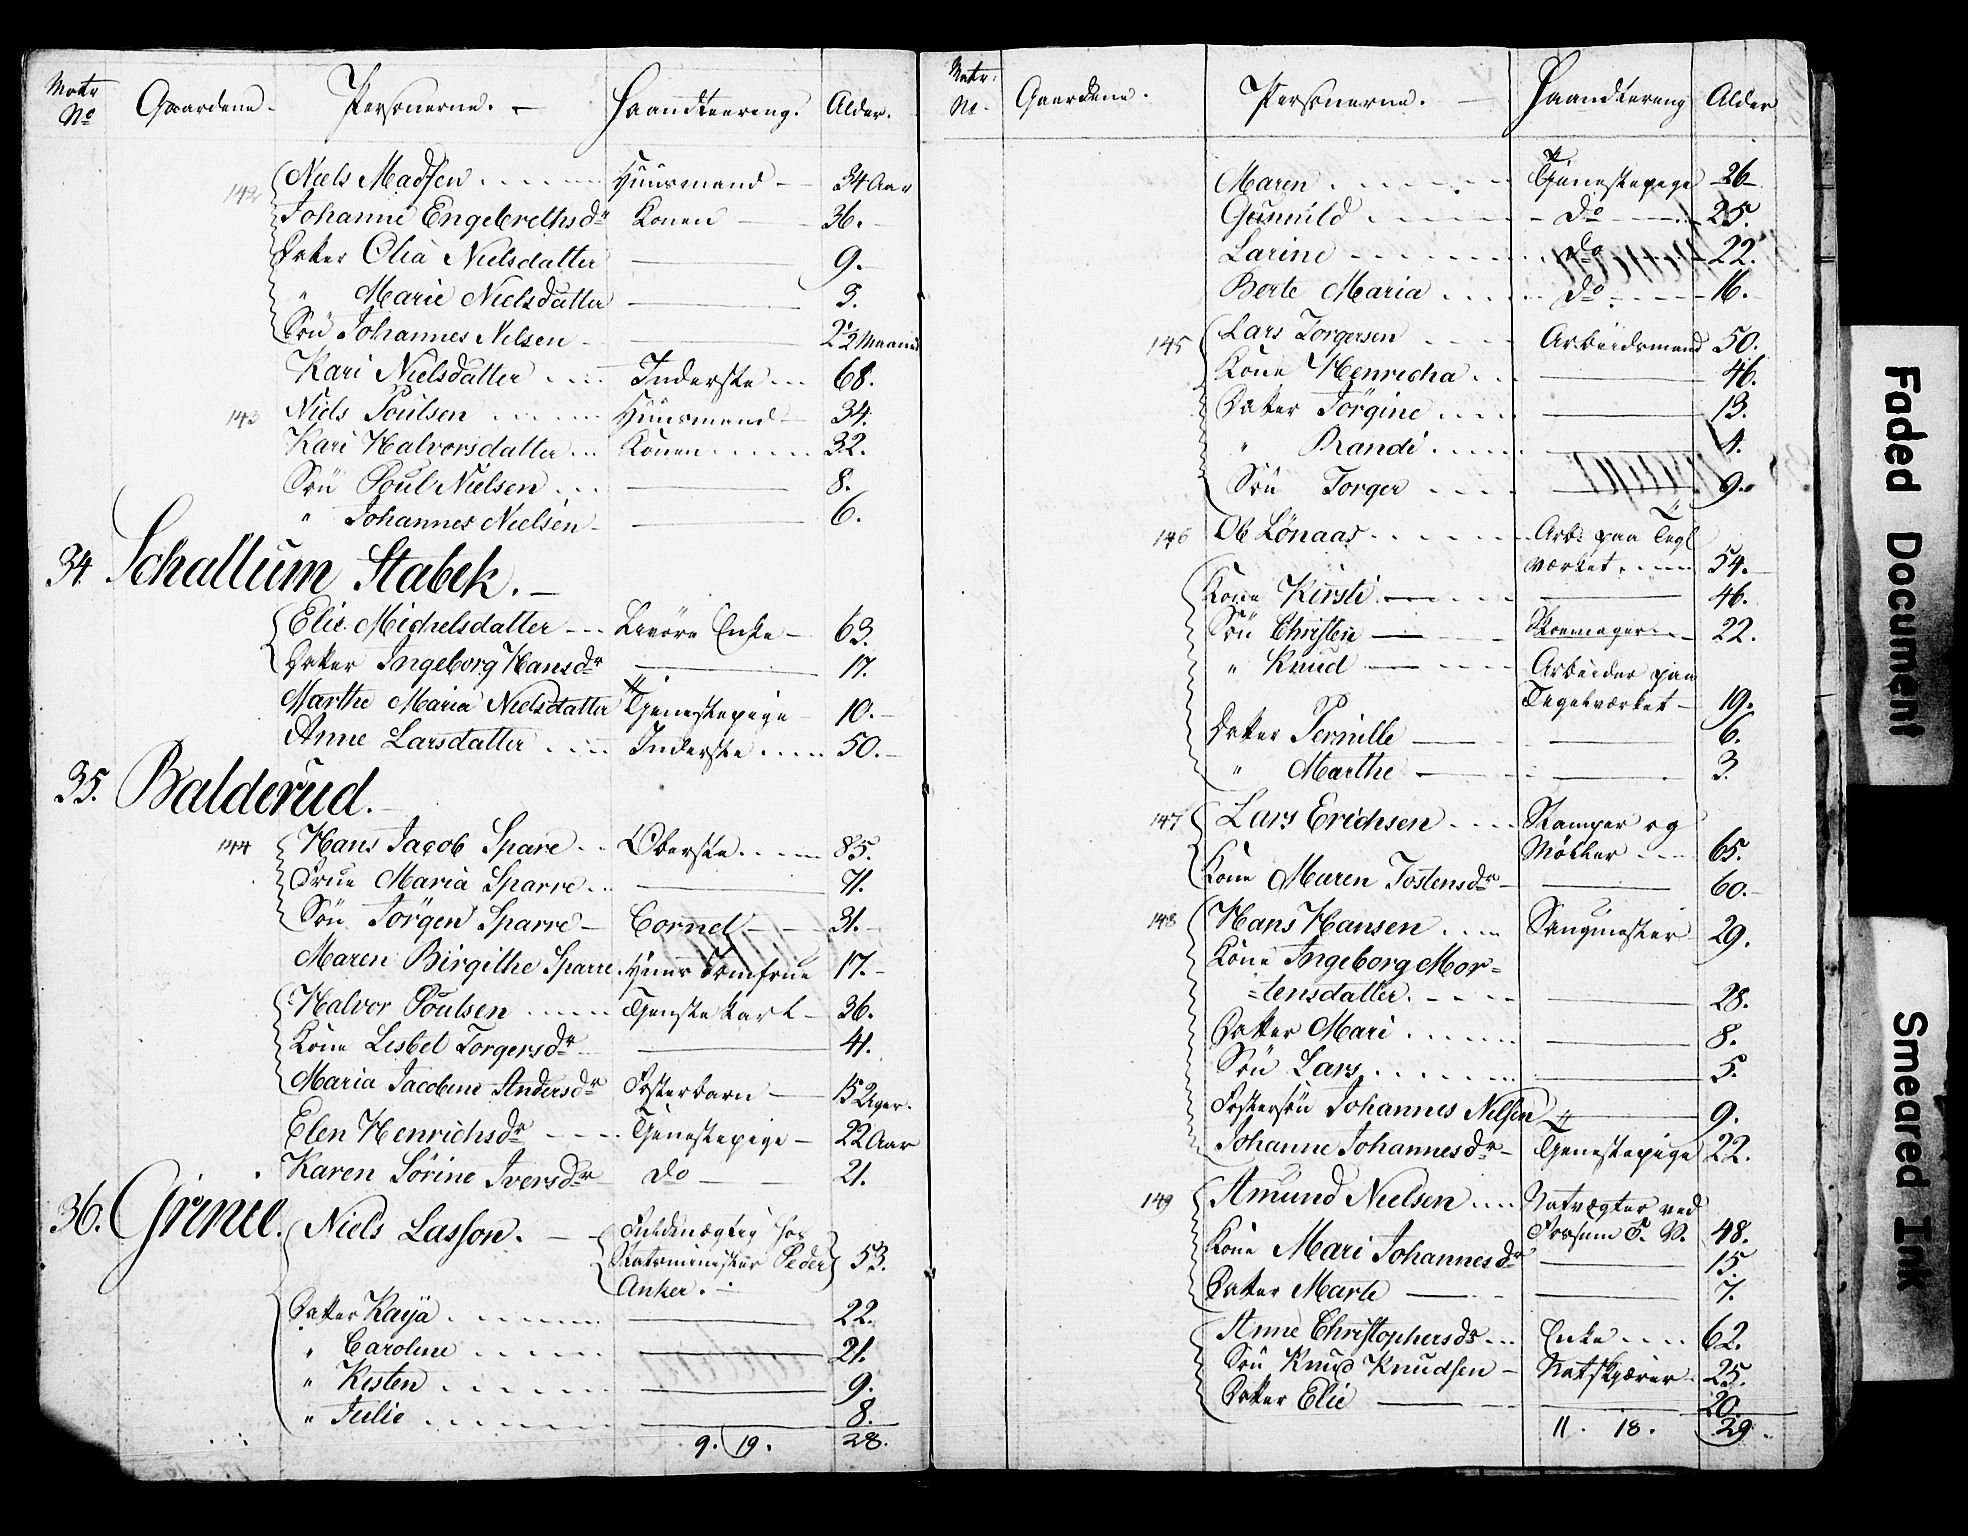 Matr No Gaardene. Personerne. Haandteering. Alder.
142 Niels Madsen Huusmand 34 Aar
Johanne Engebrethsdr Konen 36.
Datter Olia Nielsdatter 9.
" Marie Nielsdatter 3.
Søn Johannes Nilsen 2 1/2 Maaned
Kari Nielsdatter Inderste 68.
143 Niels Poulsen Huusmand 34.
Kari Halvorsdatter Konen 32.
Søn Poul Nielsen 8.
" Johannes Nielsen 6.
34. Schallum Stabek.
Elie Michelsdatter Levøre Enke 63.
Datter Ingeborg Hansdr 17.
Marthe Maria Nielsdatter Tjenestepige 10.
Anne Larsdatter Inderste 50.
35. Balderud.
144 Hans Jacob Sparre Oberste 85.
Frue Maria Sparre 71.
Søn Jørgen Sparre Cornet 31.
Maren Birgithe Sparre Huus Jomfrue 17.
Halvor Poulsen Tjenstekarl 36.
Kone Lisbet Torgersdr 41.
Maria Jacobine Andersdr Fosterbarn 15 Uger.
Elen Henrichsdr Tjenestepige 22 Aar
Karen Sørine Iversdr do 21.
36. Grinie. Niels Lasson. Fuldmægtig hos
Statsminister Peder 53.
Anker.
Datter Kaya 22.
" Caroline 21.
" Kisten 9.
" Julie 8.
9. 19. 28.
Matr: No. Gaardene. Personerne. Haandtering Alder
Maren Tjenestepige 26
Gunnild do 25.
Larine do 22.
Berte Maria do 16.
145 Lars Torgersen Arbeidsmand 50.
Kone Henricha 46.
Datter Jørgine 13.
" Randi 4.
Søn Torger 9.
146 Ole Lønaas Arb: paa Tegl
værket 54.
Kone Kirsti 46.
Søn Christen Skoemager 22.
" Knud Arbeider paa
Tegelværket 19.
Datter Pernille 6.
" Marthe 3.
147 Lars Erichsen Stamper og
Møller 65.
Kone Maren Tostensdr 60.
148 Hans Hansen Saugmester 29.
Kone Ingeborg Mor=
=tensdatter. 28.
Datter Mari 8.
Søn Lars 5.
Fostersøn Johannes Nilsen 9.
Johanne Johannesdr Tjenestepige 22.
149 Amund Nielsen Natvægter ved
Fossum J. V. 48.
Kone Mari Johannesdr 15.
Datter Marte 7.
Anne Christophersdr Enke 62.
Søn Knud Knudsen 25.
Datter Elie 20.
11. 18. 29.
Faded Document
Smeared Ink